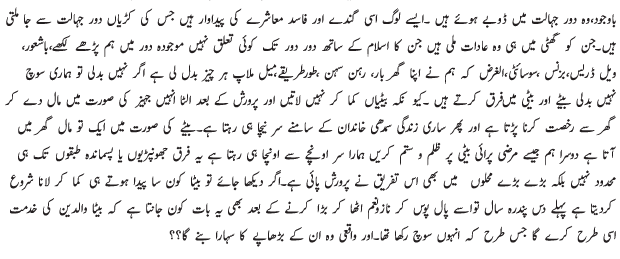 باوجود،وہ دور جہالت میں ڈوبے ہوئے ہیں ۔ایسے لوگ اسی گندے اور فاسد معاشرے کی پیداوار ہیں جس کی کڑیاں دور جہالت سے جا ملتی
ہیں۔جن کو گھٹی میں ہی وہ عادات ملی ہیں جن کا اسلام کے ساتھ دور دور تک کوئی تعلق نہیں موجودہ دور میں ہم پڑھے لکھے،باشعور،
ویل ڈریس،بزنس ،سوسائٹی،الغرض کہ ہم نے اپنا گھر بار، رہن سہن ،طورطریقے،میل ملاپ ہر چیز بدل لی ہے اگر نہیں بدلی تو ہماری سوچ
نہیں بدلی بیٹے اور بیٹی میں فرق کرتے ہیں ۔کیو نکہ بیٹیاں کما کر نہیں لاتیں اور پرورش کے بعد الٹا انہیں جہیز کی صورت میں مال دے کر
گھر سے رخصت کرنا پڑتا ہے اور پھر ساری زندگی سمدھی خاندان کے سامنے سر نیچا ہی رہتا ہے۔بیٹے کی صورت میں ایک تو مال گھر میں
آتا ہے دوسرا ہم جیسے مرضی پرائی بیٹی پر ظلم و ستم کریں ہمارا سر اونچے سے اونچا ہی رہتا ہے یہ فرق جھونپڑیوں یا پسماندہ طبقوں تک ہی
محدود نہیں بلکہ بڑے بڑے محلوں میں بھی اس تفریق نے پرورش پائی ہے۔اگر دیکھا جائے تو بیٹا کون سا پیدا ہوتے ہی کما کر لانا شروع
کردیتا ہے پہلے دس پندرہ سال تواسے پال پوس کر نازونعم اٹھا کر بڑا کرنے کے بعد بھی یہ بات کون جانتا ہے کہ بیٹا والدین کی خدمت
اسی طرح کرے گا جس طرح کہ انہوں سوچ رکھا تھا۔اور واقعی وہ ان کے بڑھاپے کا سہارا بنے گا؟؟